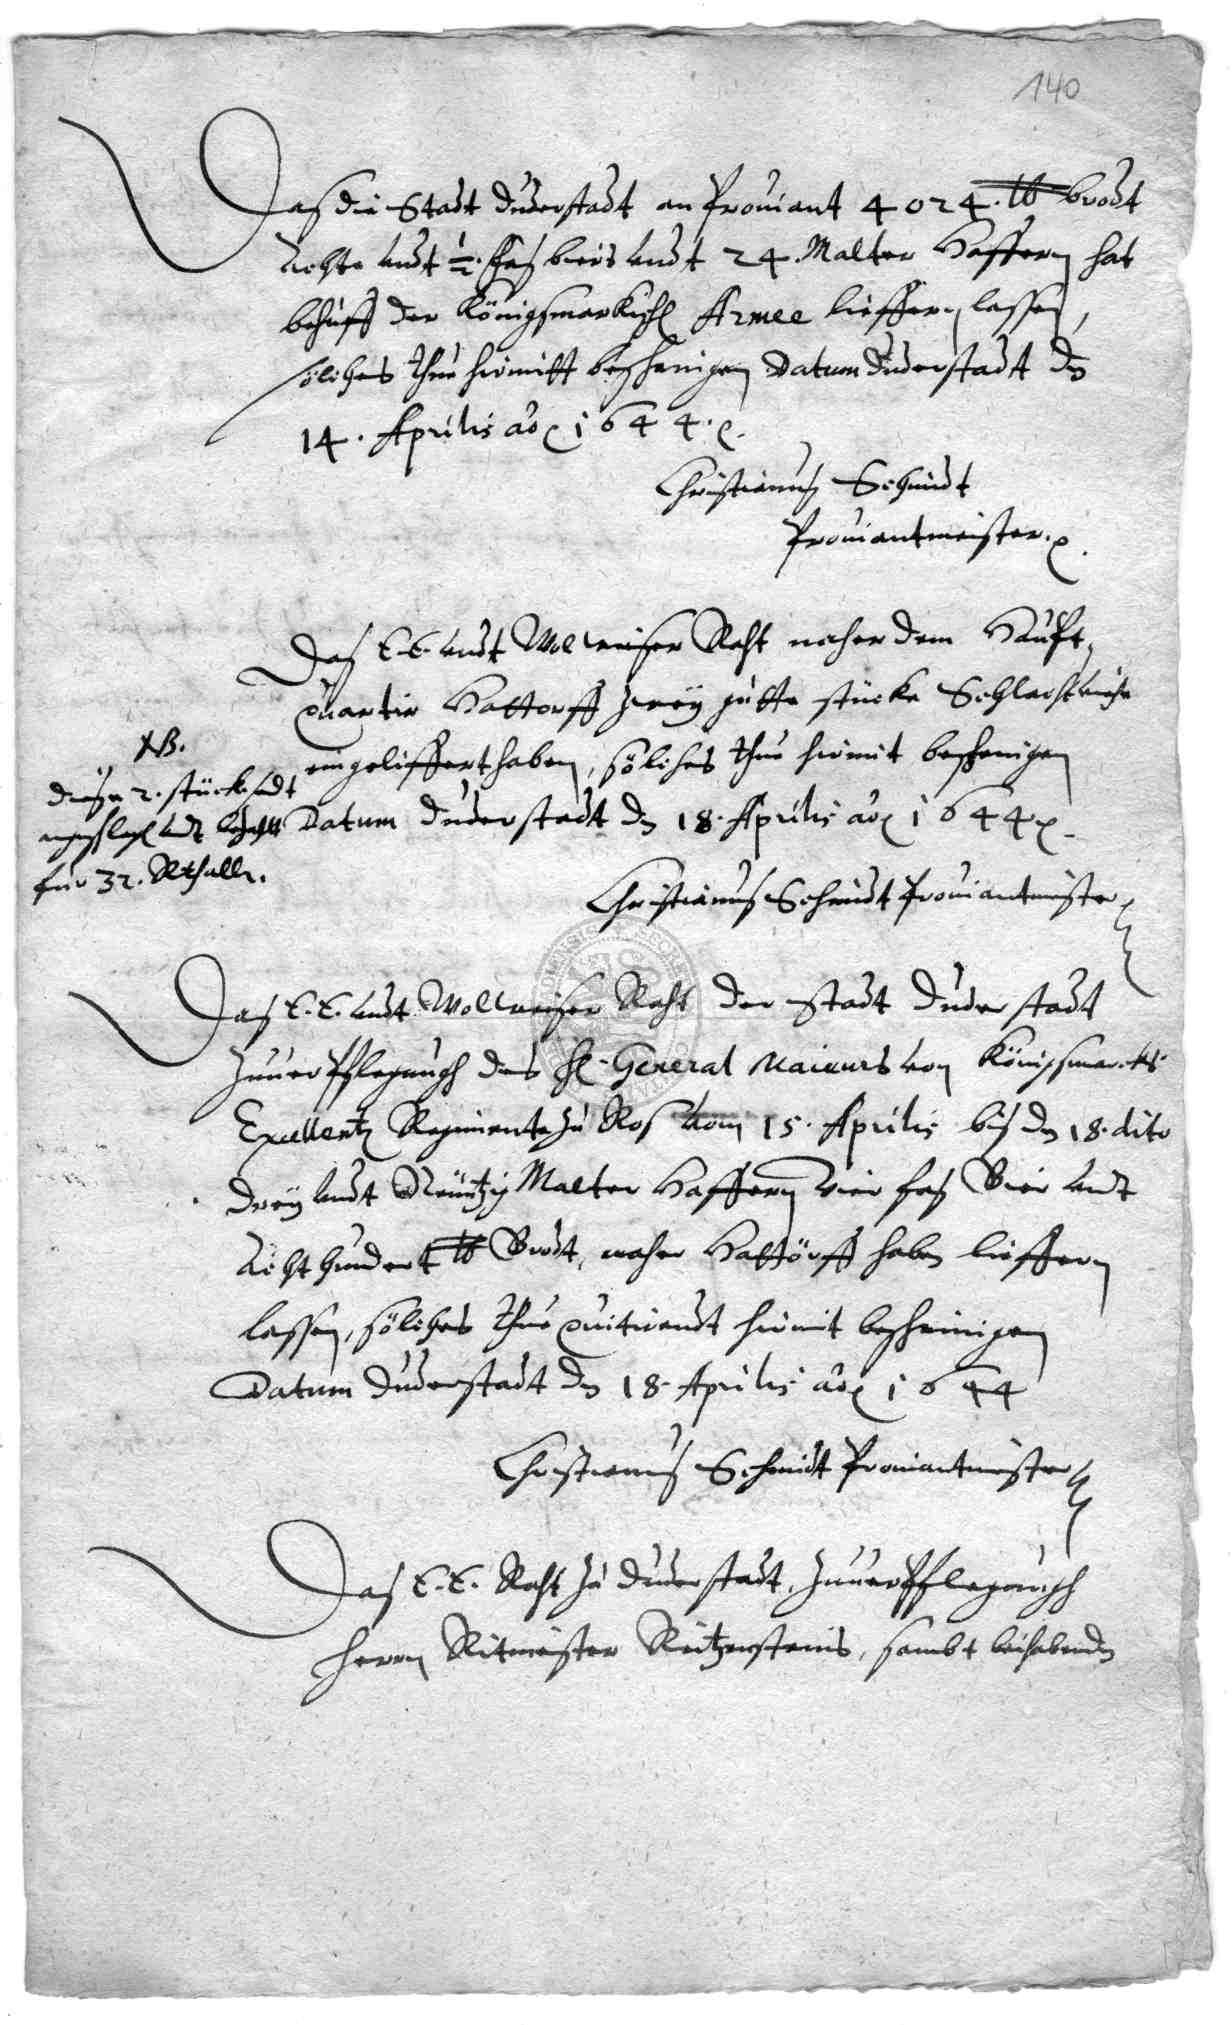 140
Das die Stadt Duderstadt an Proviant 4024. ℔ brodt
Achte undt ½. Faß biers undt 24. Malter Haffern hat
behuff der Königsmarkisch Armee lieffern lassen,
sölches thue hirmitt bescheinigen Datum Duderstadt den
14. Aprilis ao 1644.
Christianus Schmidt
Proviantmeister.
Das E. E. undt Wolweiser Raht naher dem Haupt
quartir Hattorff zwey gutte stücke Schlachtviehe
eingeliffert haben, sölches thue hirmit bescheinigen
Datum Duderstadt den 18. Aprilis ao 1644
Christianus Schmidt Proviantmeister
NB.
Diese 2. stück sindt
angeschlagen undt bezahlt
für 32. Rthall.
Das E. E. undt Wollweiser Raht der Stadt Duderstadt
Zuverpflegungh des H. General Maieurs von Königsmarks
Excellentz Regimente zu Ros vom 15. Aprilis bis den 18. dito
drey undt Neuntzig Malter Haffern vier faß Bier undt
Acht hundert ℔ Brodt, naher Hattörff haben lieffern
lassen, sölches thue quitirendt hirmit bescheinigen
Datum Duderstadt den 18. Aprilis ao 1644
Christianus Schmidt Proviantmeister
Das E. E. Raht zu Duderstadt, Zuverpflegungh
Herrn Ritmeister Reitzensteins, sambt beihabenden